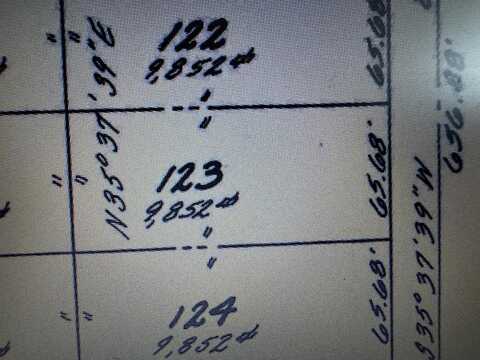 122
9,852 ⌗
N35°37'39"E
65.68
123
9,852 ⌗
65.68'
124
9,852 ⌗
65.68'
35°37'39"W
656.88'